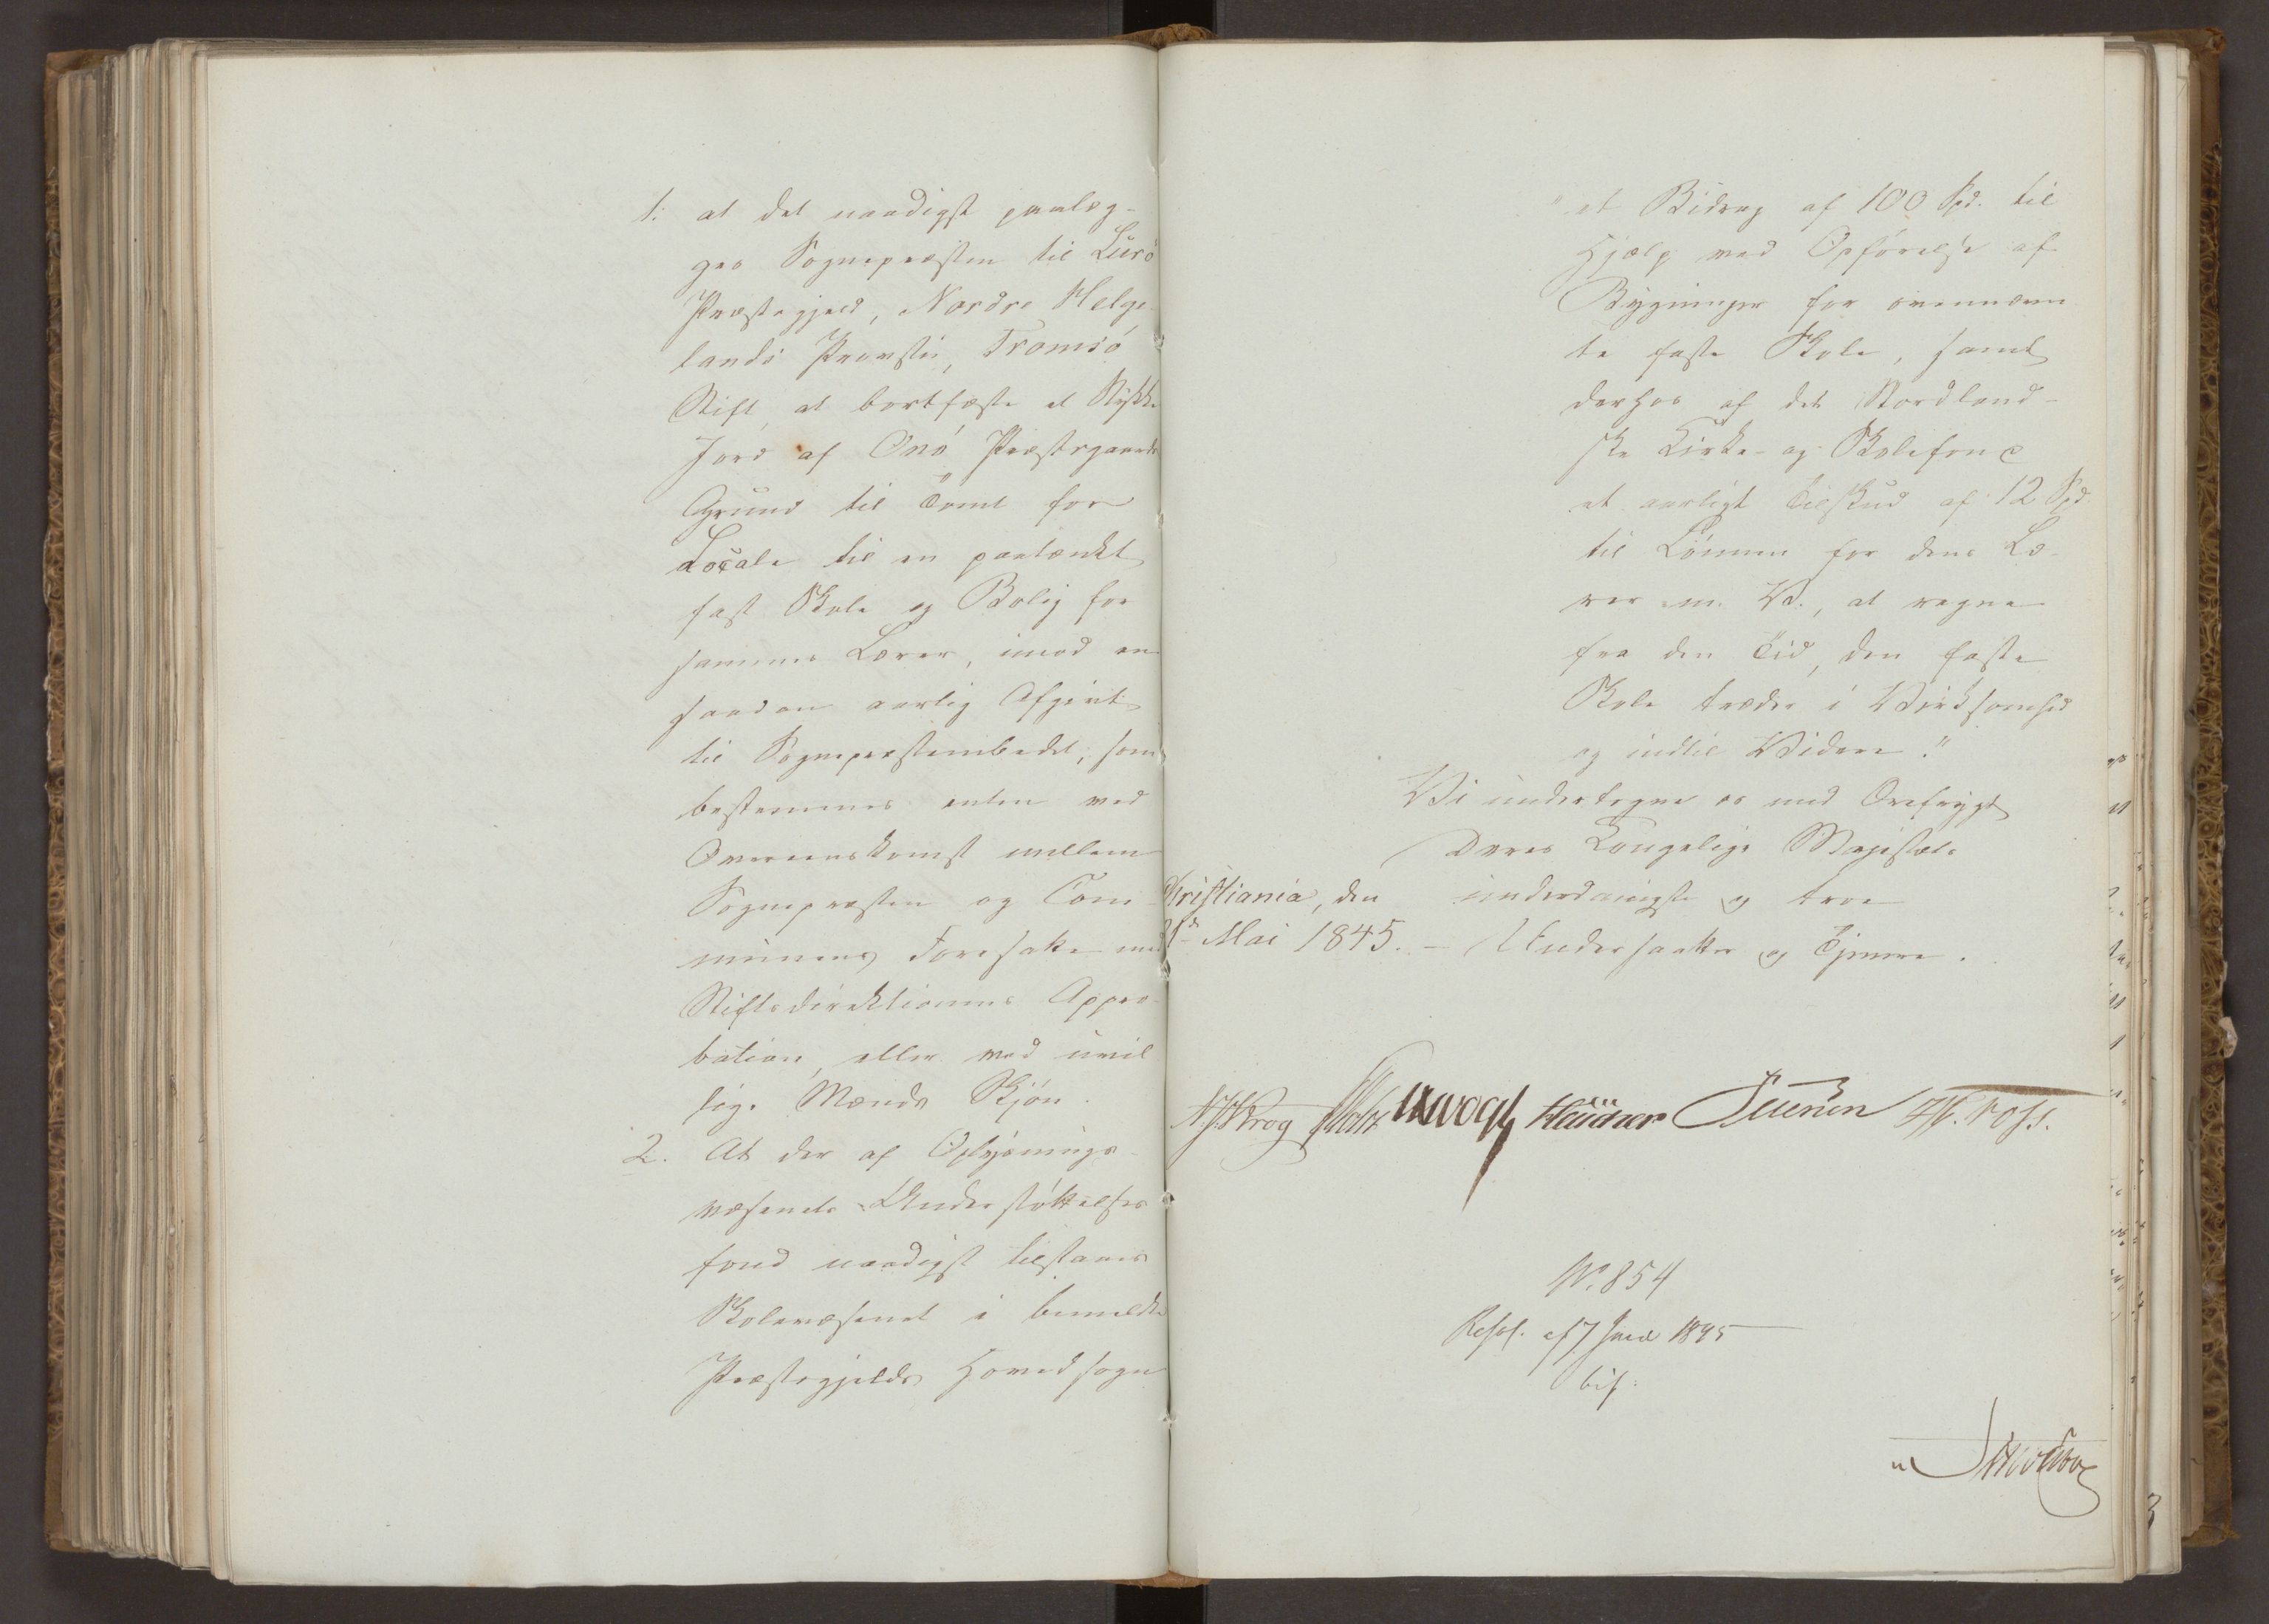 1. at det naadigst paalæg-
ges Sognepræsten til Lurö
Præstegjeld, Nordre Helge-
lands Provsti, Tromsö
Stift, at bortfæste et Stykke
Jord af Onö Præstegaards
Grund til Tomt for
Locale til en paatænkt
fast Skole og Bolig for
sammes Lærer, imod en
saadan aarlig Afgivt
til Sognepræstembedet, som
bestemmes enten ved
Overeenskomst mellem
Sognepræsten og Com-
munens Foresatte med
Stiftsdirektionens Appro-
bation, eller ved uvil-
lige Mænds Skjön.
2. At der af Oplysnings-
væsenets Understöttelses
fond naadigst tilstaaes
Skolevæsenet i bemeldte
Præstegjelds Hovedsogn
"et Bidrag af 100 Spd. til
Hjælp ved Opförelse af
Bygninger for ovennævn
te faste Skole, samt
derhos af det Nordland-
ske Kirke- og Skolefond
et aarligt Tilskud af 12 Spd.
til Lönnen for dens Læ-
rer m. V., at regne
fra den Tid, den faste
Skole træder i Virksomhed
og indtil Videre."
Vi undertegne os med Ærefrygt
Deres Kongelige Majestæts
Christiania, den underdanigste og troe
Mai 1845. — Undersaatter og Tjenere.
N. J. Krog Vogt
No. 854
Resol. af 7 Juni 1845
bif.